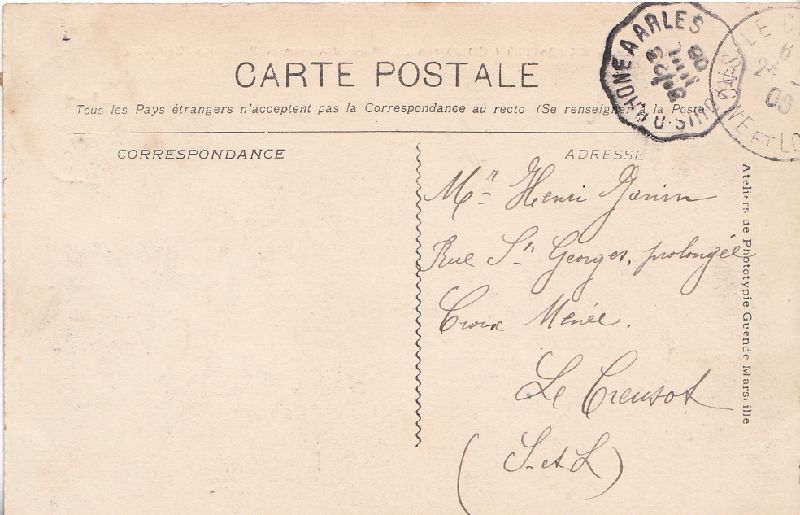 CARTE POSTALE
Tous les Pays étrangers n'acceptent pas la Correspondance au recto (Se renseigner à la Poste)
CORRESPONDANCE
ADRESSE
Mr Henri
Rue St Georges, prolongée
Croix Menée.
Le Creusot
(S-et-L)
Ateliers de Phototypie Guende Marseille
RHONE A ARLES
23
JUIL
LE C
24
ET LO